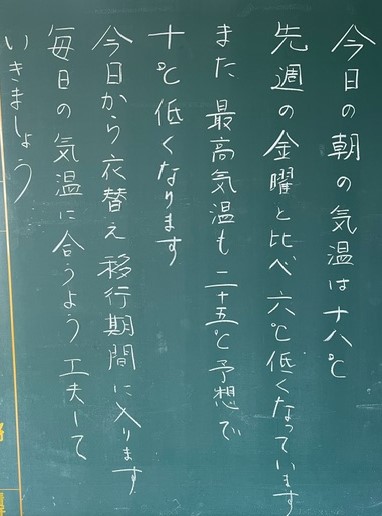 今日の朝の気温は十八℃
先週の金曜と比べ六℃低くなっています
また最高気温も二十五℃予想で
十℃低くなります
今日から衣替え移行期間に入ります
毎日の気温に合うよう工夫して
いきましょう